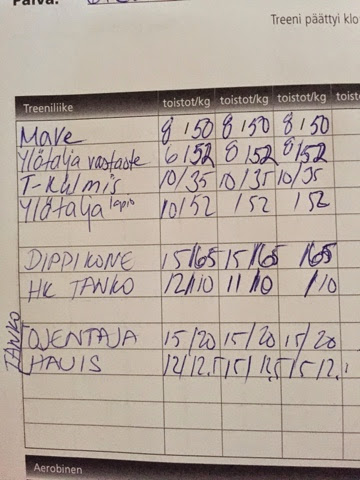 Treeni päättyi klo
Treeniliike toistot/kg toistot/kg toistot/kg tois
Mave 8/50 8/50 8/50
Ylätalja vastaote 6/52 8/52 8/52
T-kulmis 10/35 10/35 10/35
Ylätalja lapio 10/52 /52 /52
DIPPIKONE 15/65 15/65 /65
HK TANKO 12/10 11/10 /10
TANKO
OJENTAJA 15/20 15/20 15/20
HAUIS 12/12.5 15/12.5 15/12.
Aerobinen